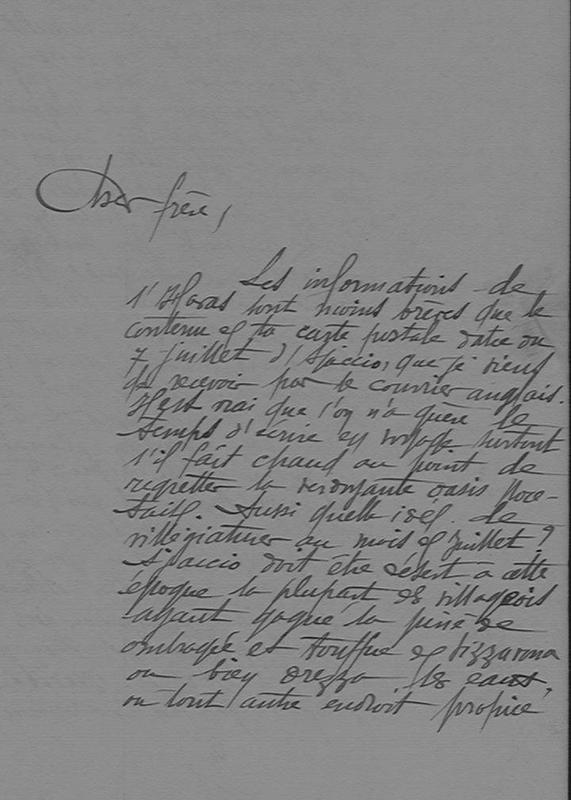 Cher frère,
Les informations de
l'Havas sont moins brèves que le
contenu de ta carte postale datée du
7 juillet d'Ajaccio, que je viens
de recevoir par le courrier anglais.
Il est vrai que l'on n'a guère le
temps d'écrire en voyage surtout
s'il fait chaud au point de
regretter la verdoyante oasis
Aussi quelle idée de
villégiaturer au mois de juillet ?
Ajaccio doit être désert a cette
époque la plupart des villageois
ayant gagné la
ombragé et touffue de Vizzavona
ou bien Orezza les eaux,
ou tout autre endroit propice